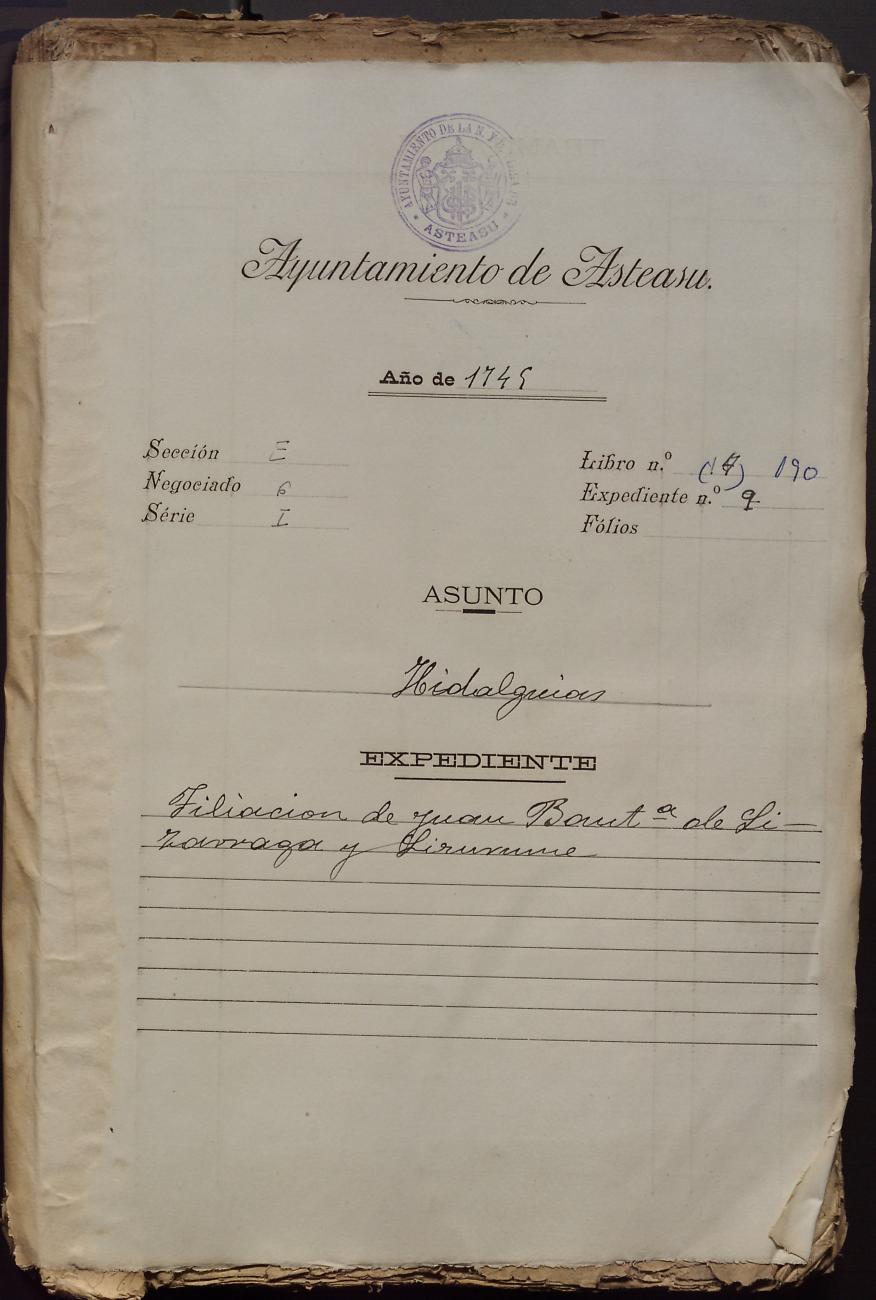 AYUNTAMIENTO DE LA N. Y
ASTEASU
Ayuntamiento de Asteasu.
Año de 1745
Sección E
Negociado 6
Série I
Libro n.º (17) 190
Expediente n.º 9
Fólios
ASUNTO
Hidalguias
EXPEDIENTE
Filiacion de Juan Baut.ª de Li-
zarraga y